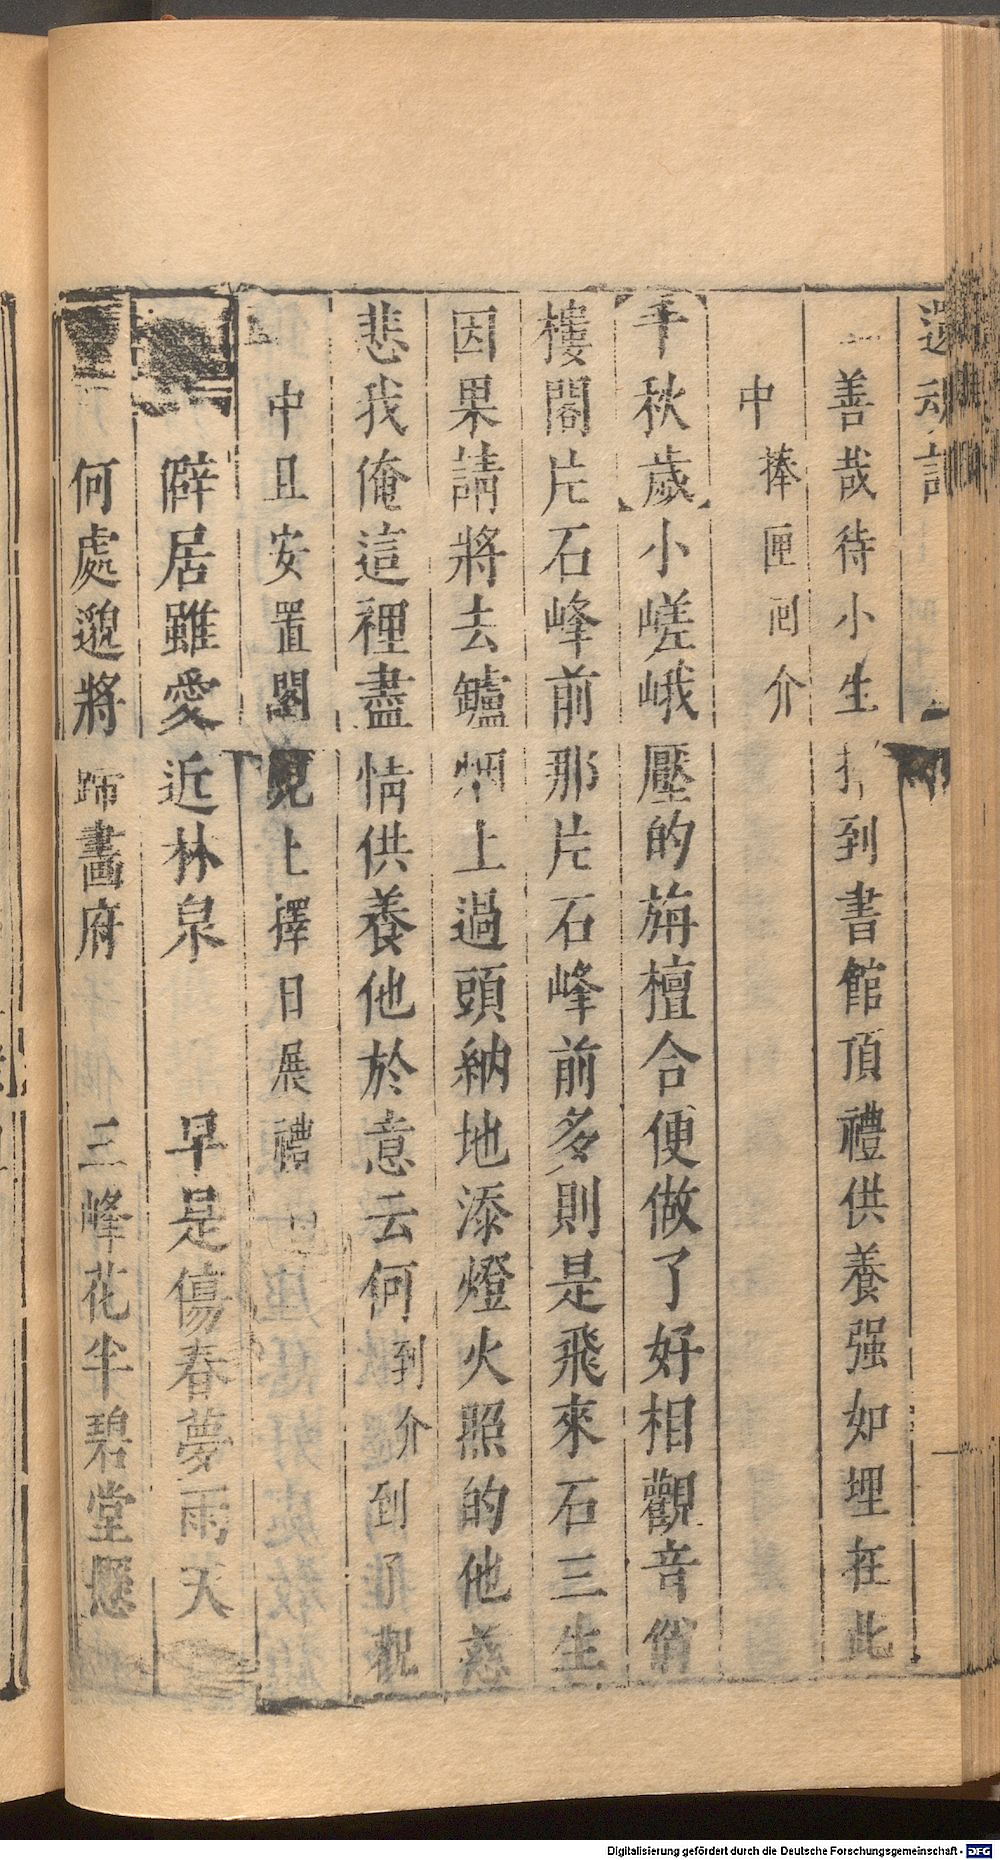 還魂記
善哉待小生到書館頂禮供養强如埋在此
中捧匣回介
千秋歲小嵯峨壓的旃檀合便做了好相觀音俏
樓閣片石峰前那片石峰前多則是飛來石三生
因果請將去鑪烟上過頭納地添燈火照的他慈
悲我俺這裡盡情供養他於意云何到介到觀
中且安置閣兒上擇日展禮
僻居雖愛近林泉　早是傷春夢雨天
何處邈將歸畫府　三峰花半碧堂懸
Digitalisierung gefördert durch die Deutsche Forschungsgemeinschaft - DFG